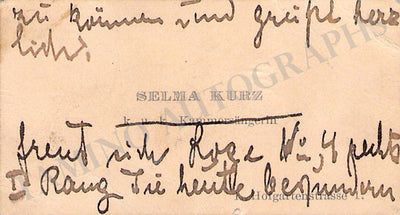 zu können und greift herz
lichst
SELMA KURZ
k. u. k. Kammersängerin
freut sich Loge No 4 rechts
I Rang Sie heute bewundern
I. Hofgartenstrasse 1.
TAMINO AUTOGRAPHS